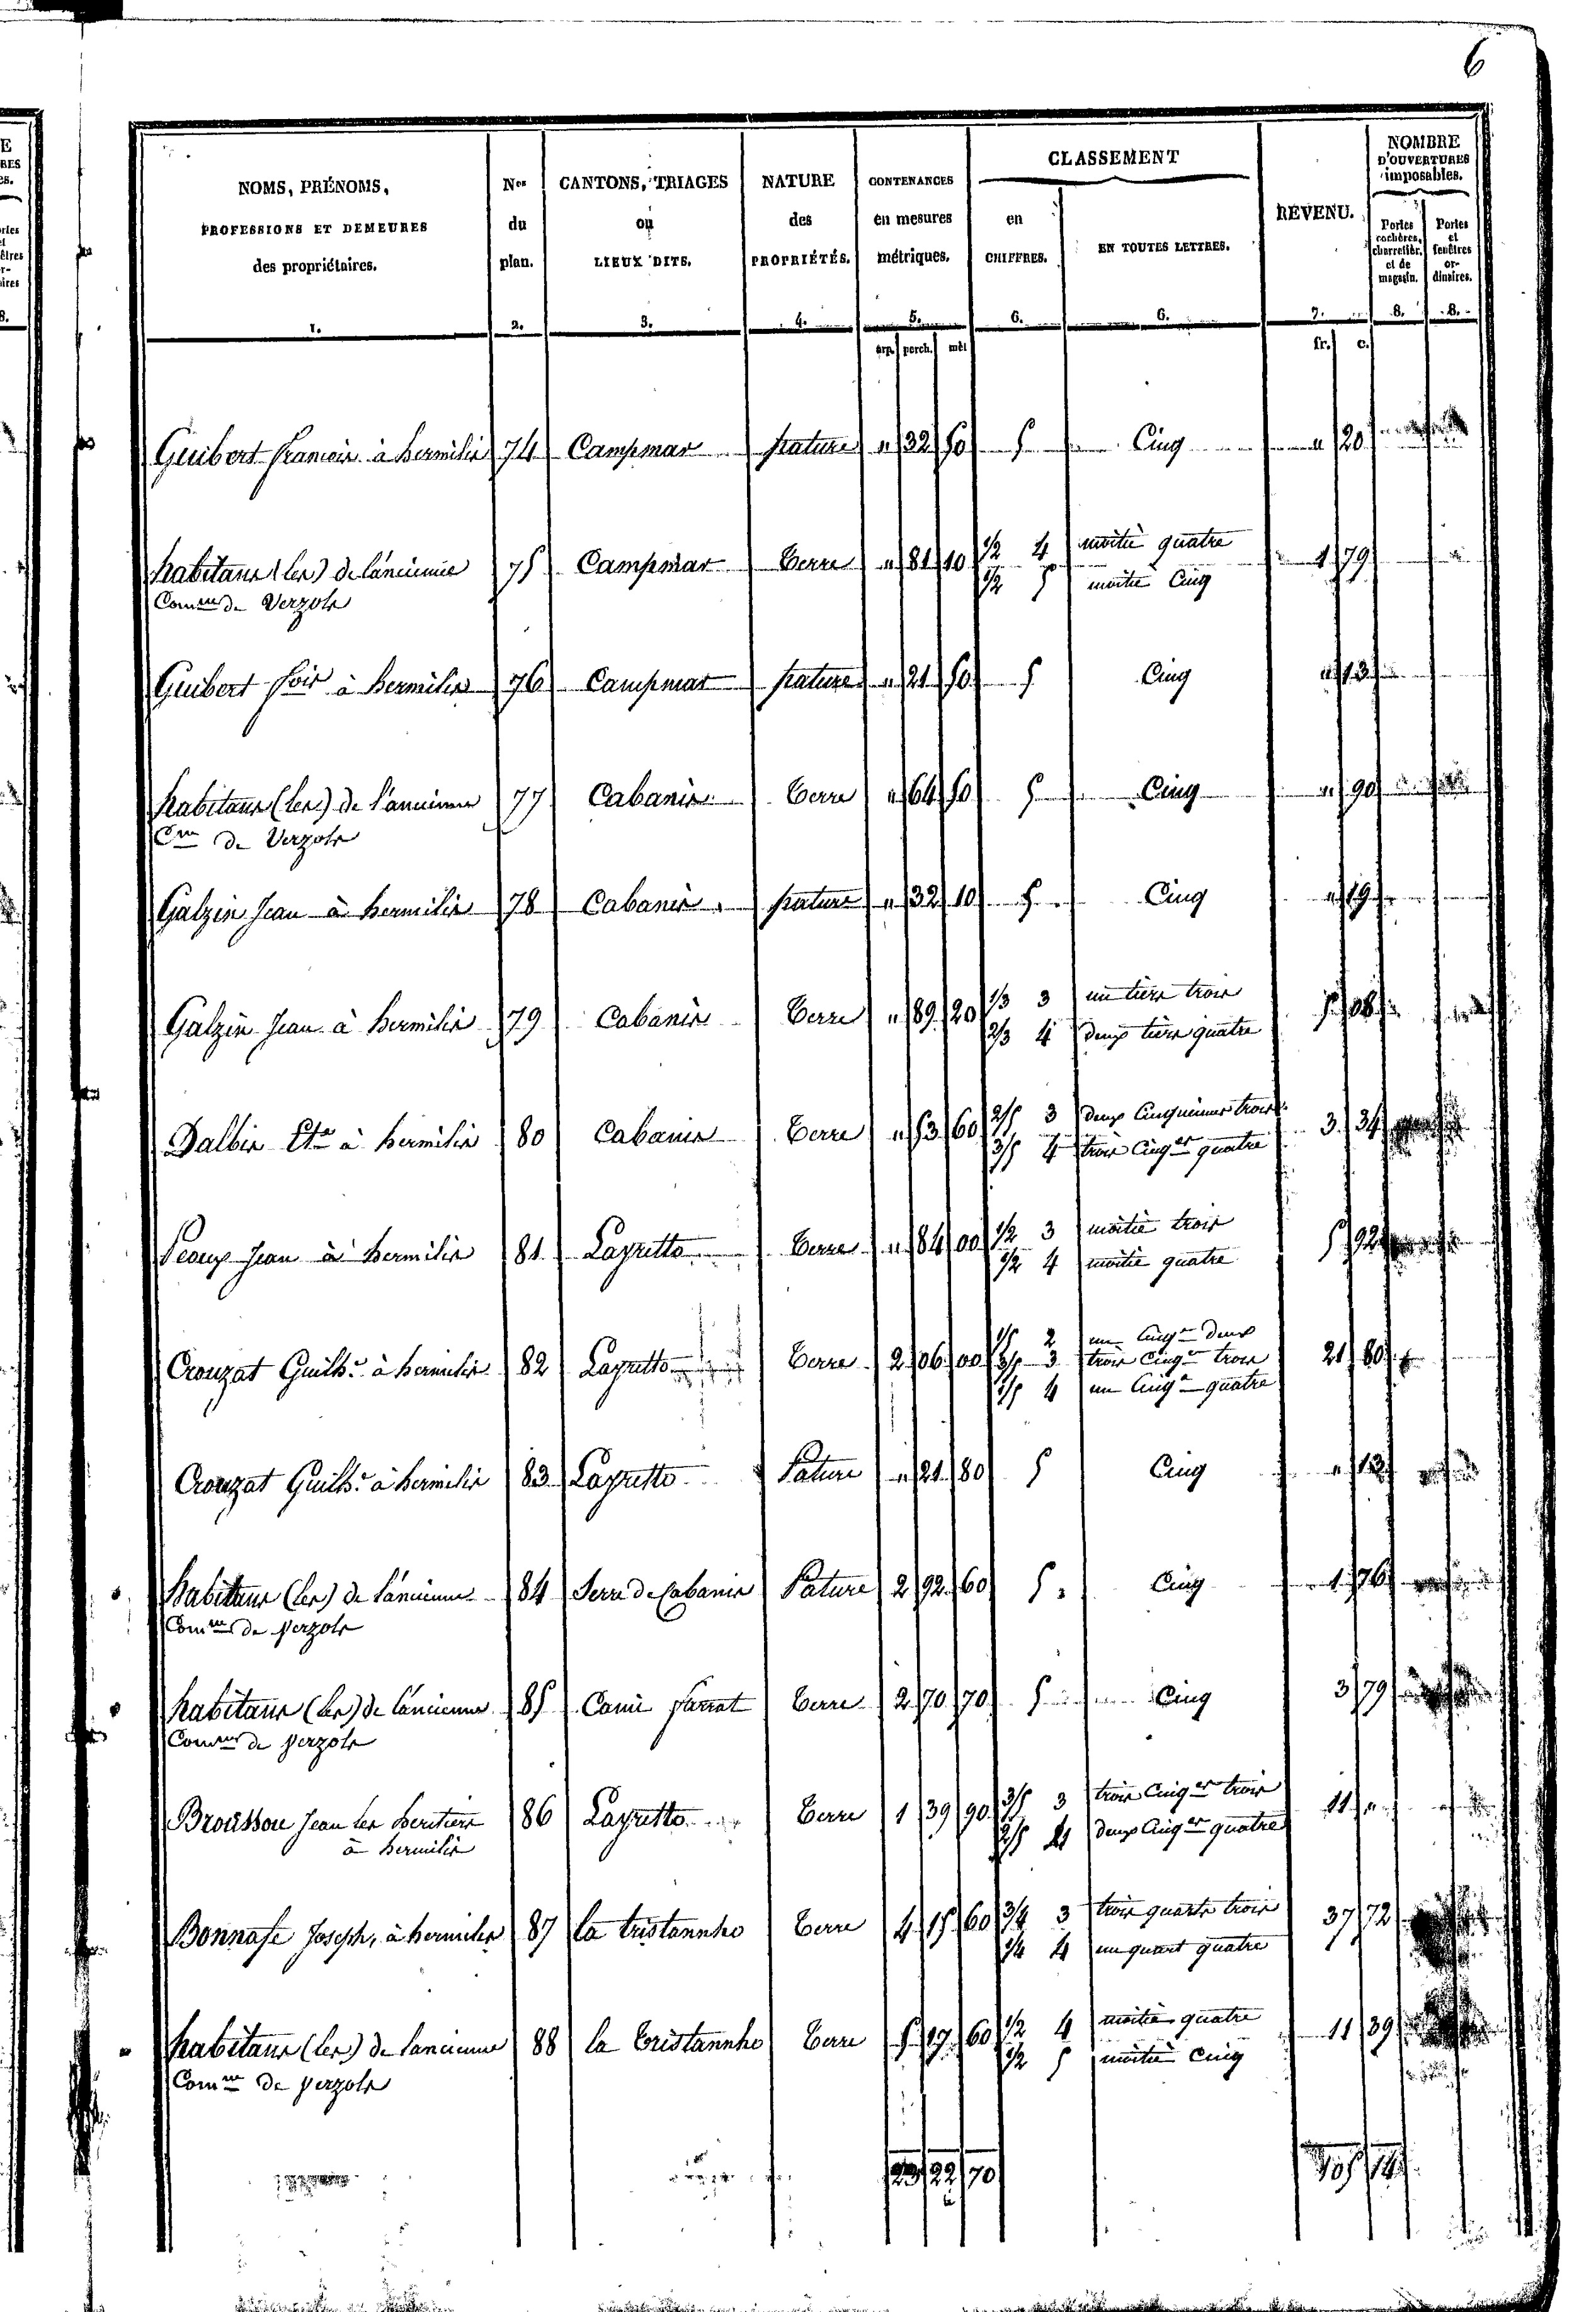 6
NOMS, PRÉNOMS, PROFESSIONS ET DEMEURES des propriétaires. 1.
Nos du plan. 2.
CANTONS, TRIAGES ou LIEUX DITS. 3.
NATURE des PROPRIÉTÉS. 4.
CONTENANCES en mesures métriques. 5.
CLASSEMENT
en CHIFFRES. 6.
EN TOUTES LETTRES. 6.
REVENU. 7.
NOMBRE D'OUVERTURES imposables.
Portes cochères, charretièr. et de magasin. 8.
Portes et fenêtres ordinaires. 8.
arp. perch. mèt fr. c.
Guibert francois à hermilix 74 Campmas pature " 32 50 5 Cinq " 20
habitans (les) de l'ancienne 75 Campmas Terre " 81 10 1/2 4 moitié quatre 1 79
Comne de Verzols 1/2 5 moitié Cinq
Guibert fois à hermilix 76 Campmas pature " 21 50 5 Cinq " 13
habitans (les) de l'ancienne 77 Cabanis Terre " 64 50 5 Cinq " 90
Cne de Verzols
Galzin Jean à hermilix 78 Cabanis pature " 32 10 5 Cinq " 19
Galzin Jean à hermilix 79 Cabanis Terre " 89 20 1/3 3 un tiers trois 5 08
2/3 4 deux tiers quatre
Dalbis à hermilix 80 Cabanis Terre " 53 60 2/5 3 deux Cinquiemes trois 3 34
3/5 4 trois Cinqes quatre
Jean à hermilix 81 Layrette Terre " 84 00 1/2 3 moitié trois 5 92
1/2 4 moitié quatre
Crouzat Guilhe à hermilix 82 Layrette Terre 2 06 00 1/5 2 un Cinqe deux 21 80
3/5 3 trois Cinqe trois
1/5 4 un Cinqe quatre
Crouzat Guilhe à hermilix 83 Layrette Pature " 21 80 5 Cinq " 13
habitans (les) de l'ancienne 84 Serre de Cabanis Pature 2 92 60 5 Cinq 1 76
Comne de Verzols
habitans (les) de l'ancienne 85 Cami farrat Terre 2 70 70 5 Cinq 3 79
Comne de Verzols
Broussou Jean les heritiers 86 Layrette Terre 1 39 90 3/5 3 trois Cinqes trois 11 "
à hermilix 2/5 4 deux Cinqes quatre
Bonnafe Joseph, à hermilix 87 la tristannho Terre 4 15 60 3/4 3 trois quarts trois 37 72
1/4 4 un quart quatre
habitans (les) de lancienne 88 la Tristannho Terre 5 17 60 1/2 4 moitié quatre 11 39
Comne de Verzols 1/2 5 moitié Cinq
23 22 70 105 14